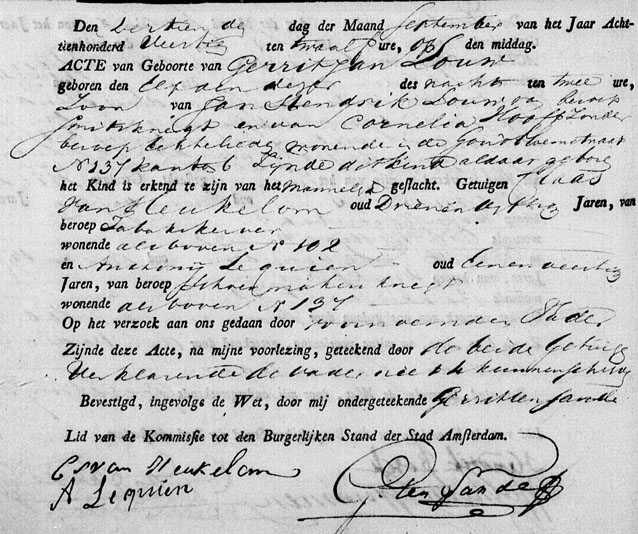 Den dertiende dag der Maand September van het Jaar Acht-
tienhonderd Veertig ten twaalf ure, op den middag.
ACTE van Geboorte van Gerrit Jan Louw
geboren den Elfden dezer des nachts ten twee ure,
Zoon van Jan Hendrik Louw van beroep
smitsknegt en van Cornelia Hooff Zonder
beroep Echtelieden wonende in de
N 137 kanton 6 Zijnde dit kind aldaar gebore
het Kind is erkend te zijn van het Mannelijk geslacht. Getuigen Claas
van Heukelom oud Drieen Jaren, van
beroep Tabakskerver
wonende als boven N 102
en Anthonij Lequien oud Eenenveertig
Jaren, van beroep Schoenmakers knegt
wonende als boven N 137
Op het verzoek aan ons gedaan door voornoemden Vader
Zijnde deze Acte, na mijne voorlezing, geteekend door de beide getuige
Verklarende de vader niet te kunnen schrijve
Bevestigd, ingevolge de Wet, door mij ondergeteekende Gerrit ten Sande
Lid van de Kommissie tot den Burgerlijken Stand der Stad Amsterdam.
C van Heukelom
A Lequien
G. ten Sande